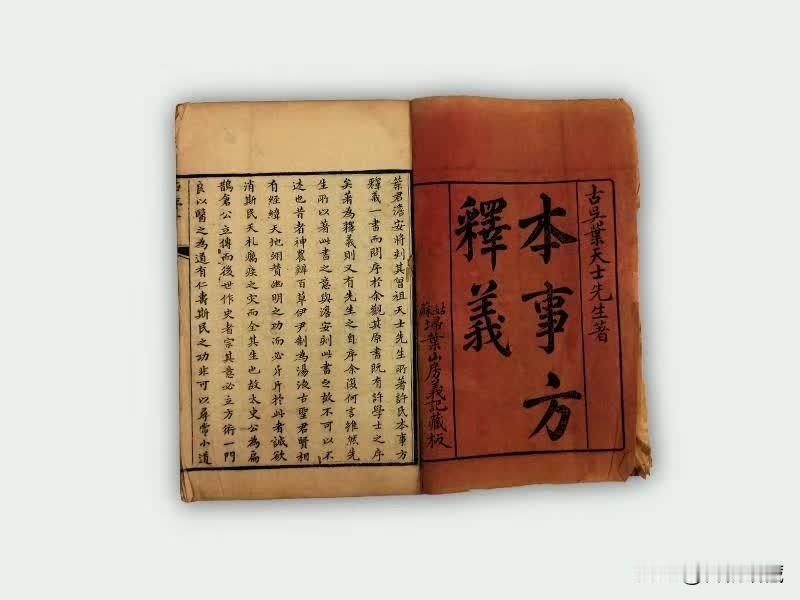 古吳葉天士先生著
本事方
釋義
姑蘇掃葉山房義記藏板
葉君澹安將刊其曾祖天士先生所著許氏本事方
釋義一書而問序於余觀其原書既有許學士之序
矣著為釋義則又有先生之自序余復何言雖然先
生所以著此書之意與澹安刻此書之故不可以不
述也昔者神農辨百草伊尹制為湯液古聖君賢相
有經緯天地翊贊幽明之功而必斤斤於此者誠欲
消斯民夭札癘疵之灾而全其生也故太史公為扁
鵲倉公立傳而後世作史者宗其意必立方術一門
良以醫之為道有仁壽斯民之功非可以尋常小道